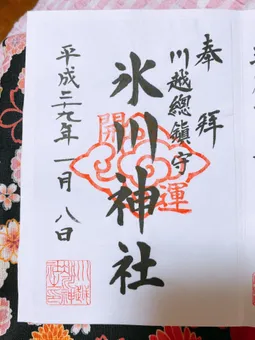 奉拝
川越總鎮守
氷川神社
開運
平成二十九年一月八日